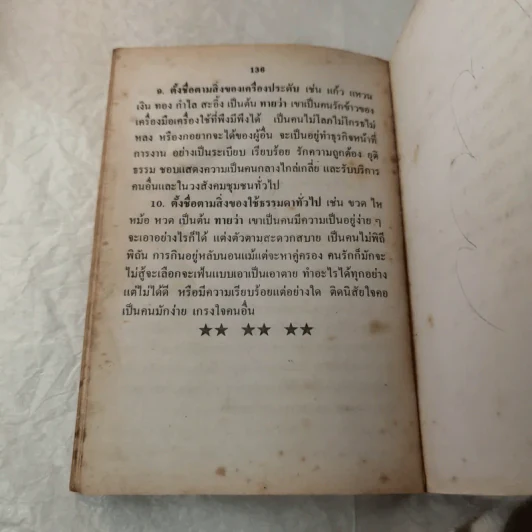 136
9. ตั้งชื่อตามสิ่งของเครื่องประดับ เช่น แก้ว แหวน
เงิน ทอง กำไล สะอิ้ง เป็นต้น ทายว่า เขาเป็นคนรักข้าวของ
เครื่องมือเครื่องใช้ที่พึงมีพึงได้ เป็นคนไม่โลภไม่โกรธไม่
หลง หรืองกอยากจะได้ของผู้อื่น จะเป็นอยู่ทำธุรกิจหน้าที่
การงาน อย่างเป็นระเบียบ เรียบร้อย รักความถูกต้อง ยุติ
ธรรม ชอบแสดงความเป็นคนกลางไกล่เกลี่ย และรับบริการ
คนอื่นและในวงสังคมชุมชนทั่วไป
10. ตั้งชื่อตามสิ่งของใช้ธรรมดาทั่วไป เช่น ขวด ไห
หม้อ หวด เป็นต้น ทายว่า เขาเป็นคนมีความเป็นอยู่ง่าย ๆ
จะเอาอย่างไรก็ได้ แต่งตัวตามสะดวกสบาย เป็นคนไม่พิถี
พิถัน การกินอยู่หลับนอนแม้แต่จะหาคู่ครอง คนรักก็มักจะ
ไม่สู้จะเลือกจะเฟ้นแบบเอาเป็นเอาตาย ทำอะไรได้ทุกอย่าง
แต่ไม่ได้ดี หรือมีความเรียบร้อยแต่อย่างใด ติดนิสัยใจคอ
เป็นคนมักง่าย เกรงใจคนอื่น